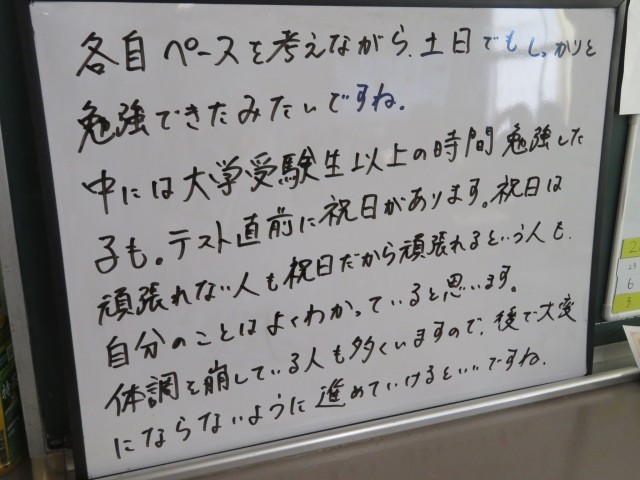 各自ペースを考えながら、土日でもしっかりと
勉強できたみたいですね。
中には大学受験生以上の時間勉強した
子も。テスト直前に祝日があります。祝日は
頑張れない人も祝日だから頑張れるという人も、
自分のことはよくわかっていると思います。
体調を崩している人も多くいますので、後で大変
にならないように進めていけるといいですね。
2
6